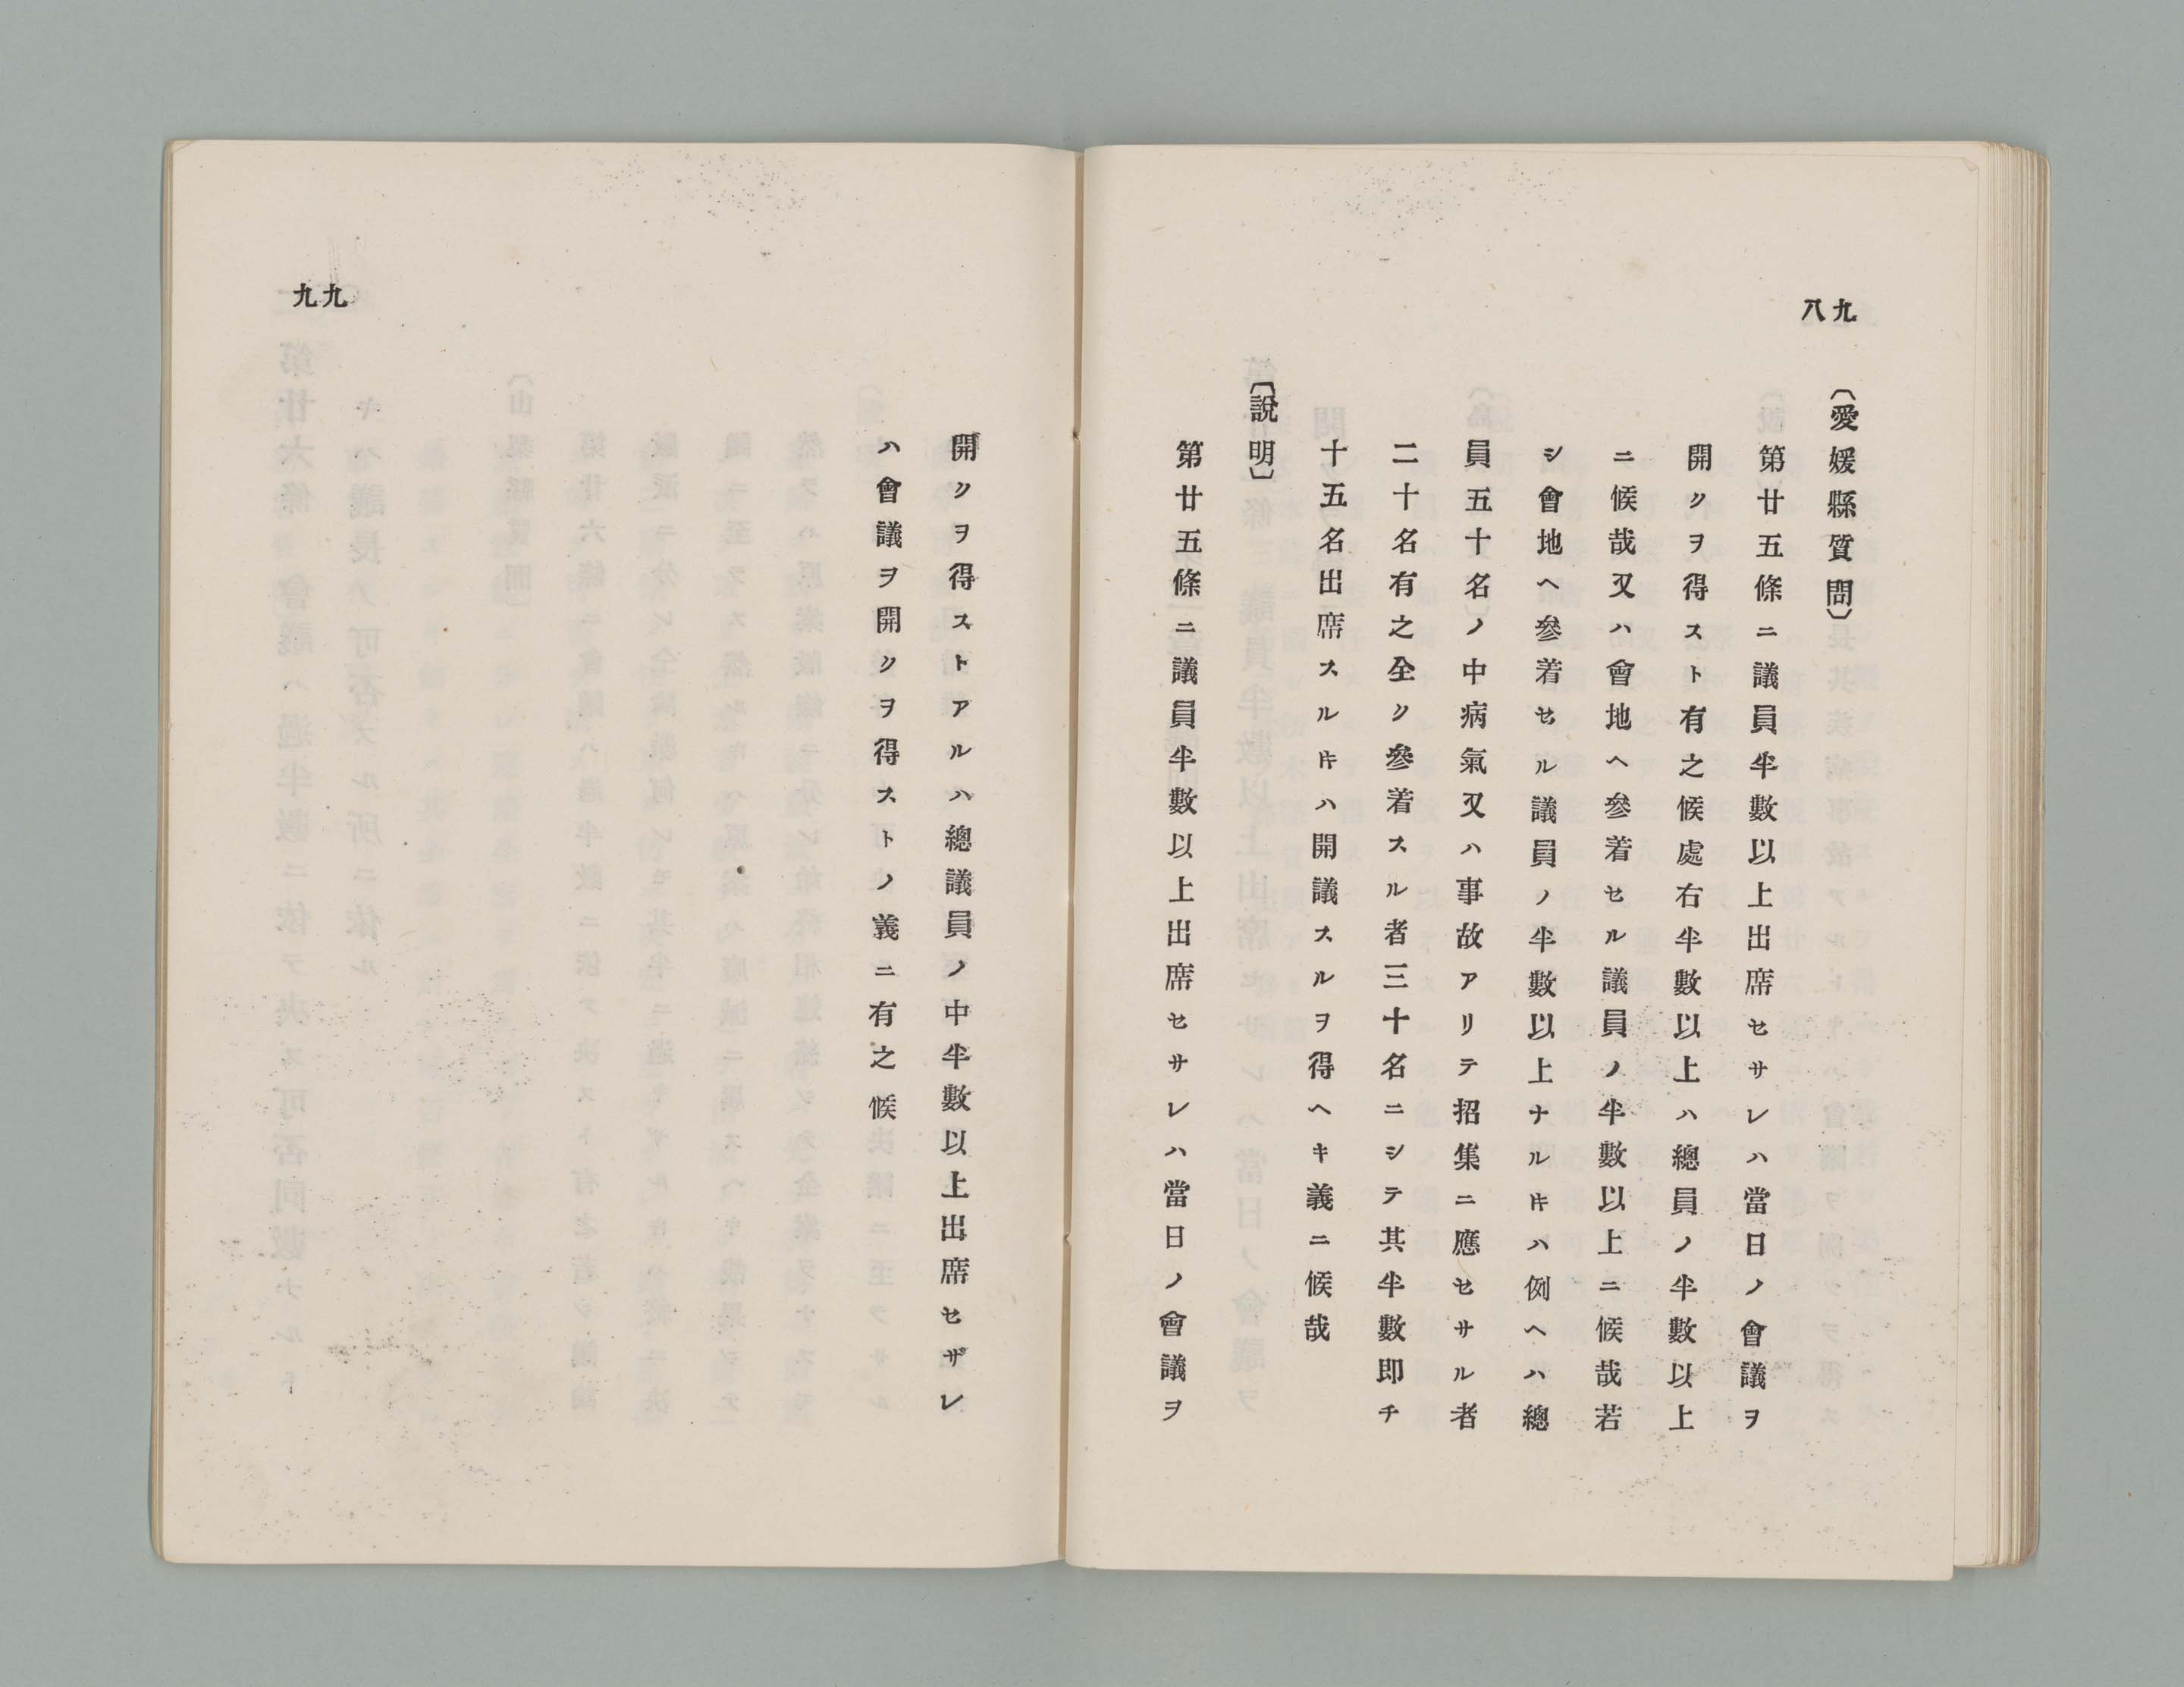 九八
〔愛媛縣質問〕
第廿五條ニ議員半數以上出席セサレハ當日ノ會議ヲ
開クヲ得スト有之候處右半數以上ハ總員ノ半數以上
ニ候哉又ハ會地ヘ參着セル議員ノ半數以上ニ候哉若
シ會地ヘ參着セル議員ノ半數以上ナルㇻキハ例ヘハ總
員五十名ノ中病氣又ハ事故アリテ招集ニ應セサル者
二十名有之全ク參着スル者三十名ニシテ其半數即チ
十五名出席スルㇻキハ開議スルヲ得ヘキ義ニ候哉
〔說明〕
第廿五條ニ議員半數以上出席セサレハ當日ノ會議ヲ
九九
開クヲ得ストアルハ總議員ノ中半數以上出席セザレ
ハ會議ヲ開クヲ得ストノ義ニ有之候